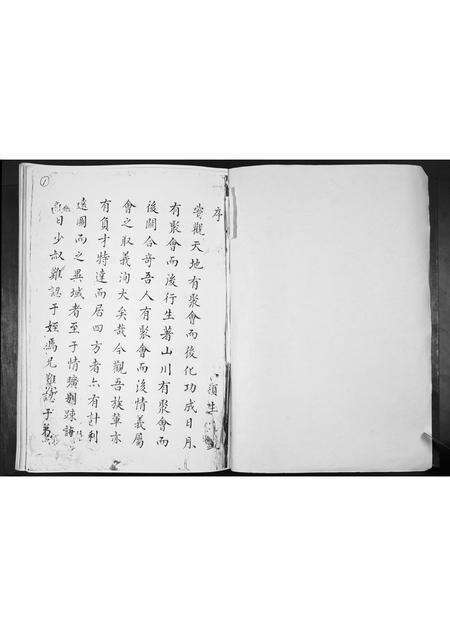 序
嘗觀天地有聚會而後化功成日月
有聚會而後行生著山川有聚會而
後關合奇吾人有聚會而後情義属
會之取義洵大矣哉今觀吾族華亦
有負才特達而居四方者亦有計利
遠圖而之異域者至于情曠
日少叔難認于姪馮兄難認于弟